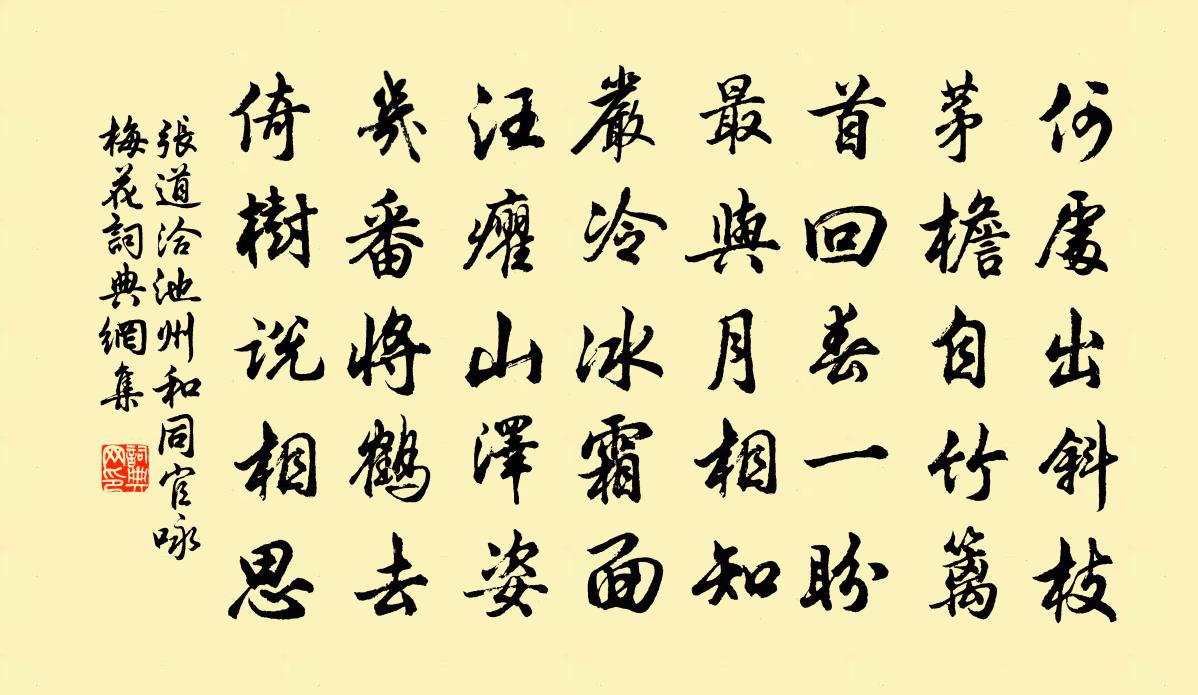 何處出斜枝
茅檐自竹籬
首回春一盼
最與月相知
嚴冷冰霜面
汪癯山澤姿
幾番將鶴去
倚樹説相思
張道洽池州和同官咏
梅花詞典網集
詞典
网印